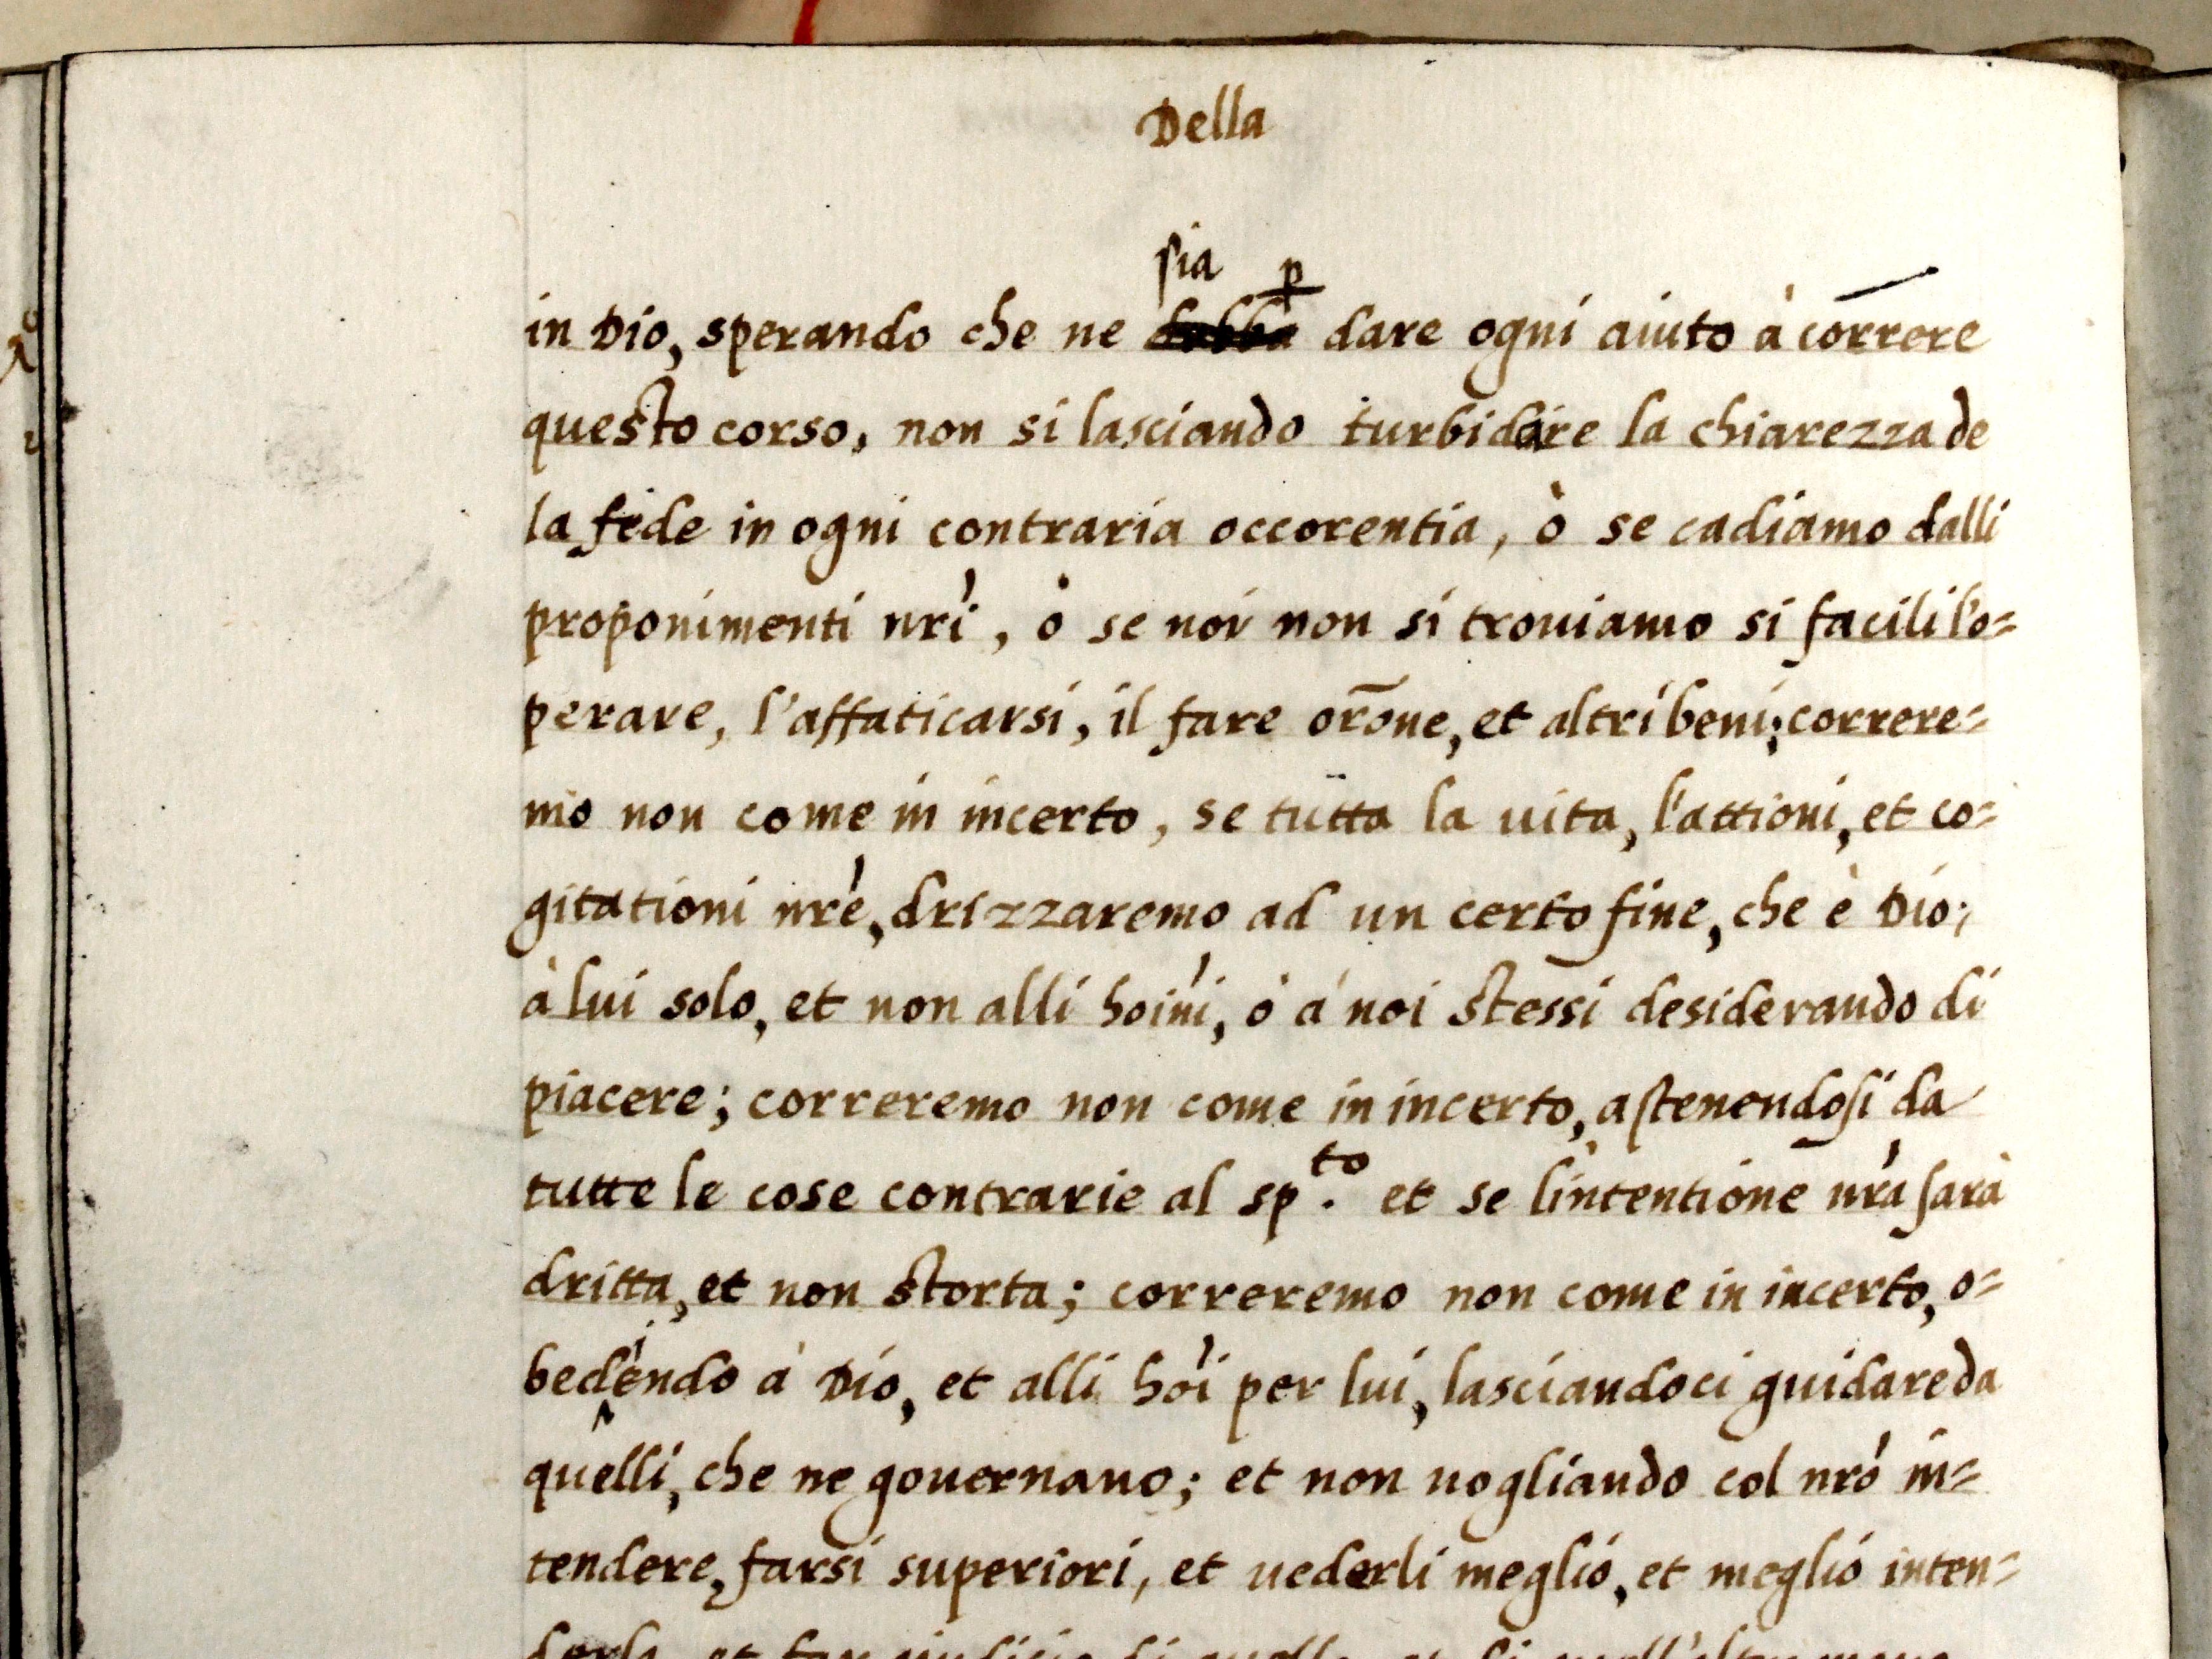 Della
sia p
in Dio, sperando che ne debba dare ogni aiuto à correre
questo corso, non si lasciando turbidare la chiarezza de
la fede in ogni contraria occorentia, ò se cadiamo dalli
proponimenti nrì, ò se noi non si trouiamo si facili l'o=
perare, l'affaticarsi, il fare orõne, et altri beni; correre=
mo non come in incerto, se tutta la uita, l'attioni, et co=
gitationi nrè, drizzaremo ad un certo fine, che è Dio;
à lui solo, et non alli hoìni, ò à noi stessi desiderando di
piacere; correremo non come in incerto, astenendosi da
tutte le cose contrarie al sp.to et se l'intentione nrà sarà
dritta, et non storta; correremo non come in incerto, o=
bediendo à Dio, et alli hòi per lui, lasciandoci guidare da
quelli, che ne gouernano; et non uogliando col nrò in=
tendere, farsi superiori, et uederli meglio, et meglio inten=